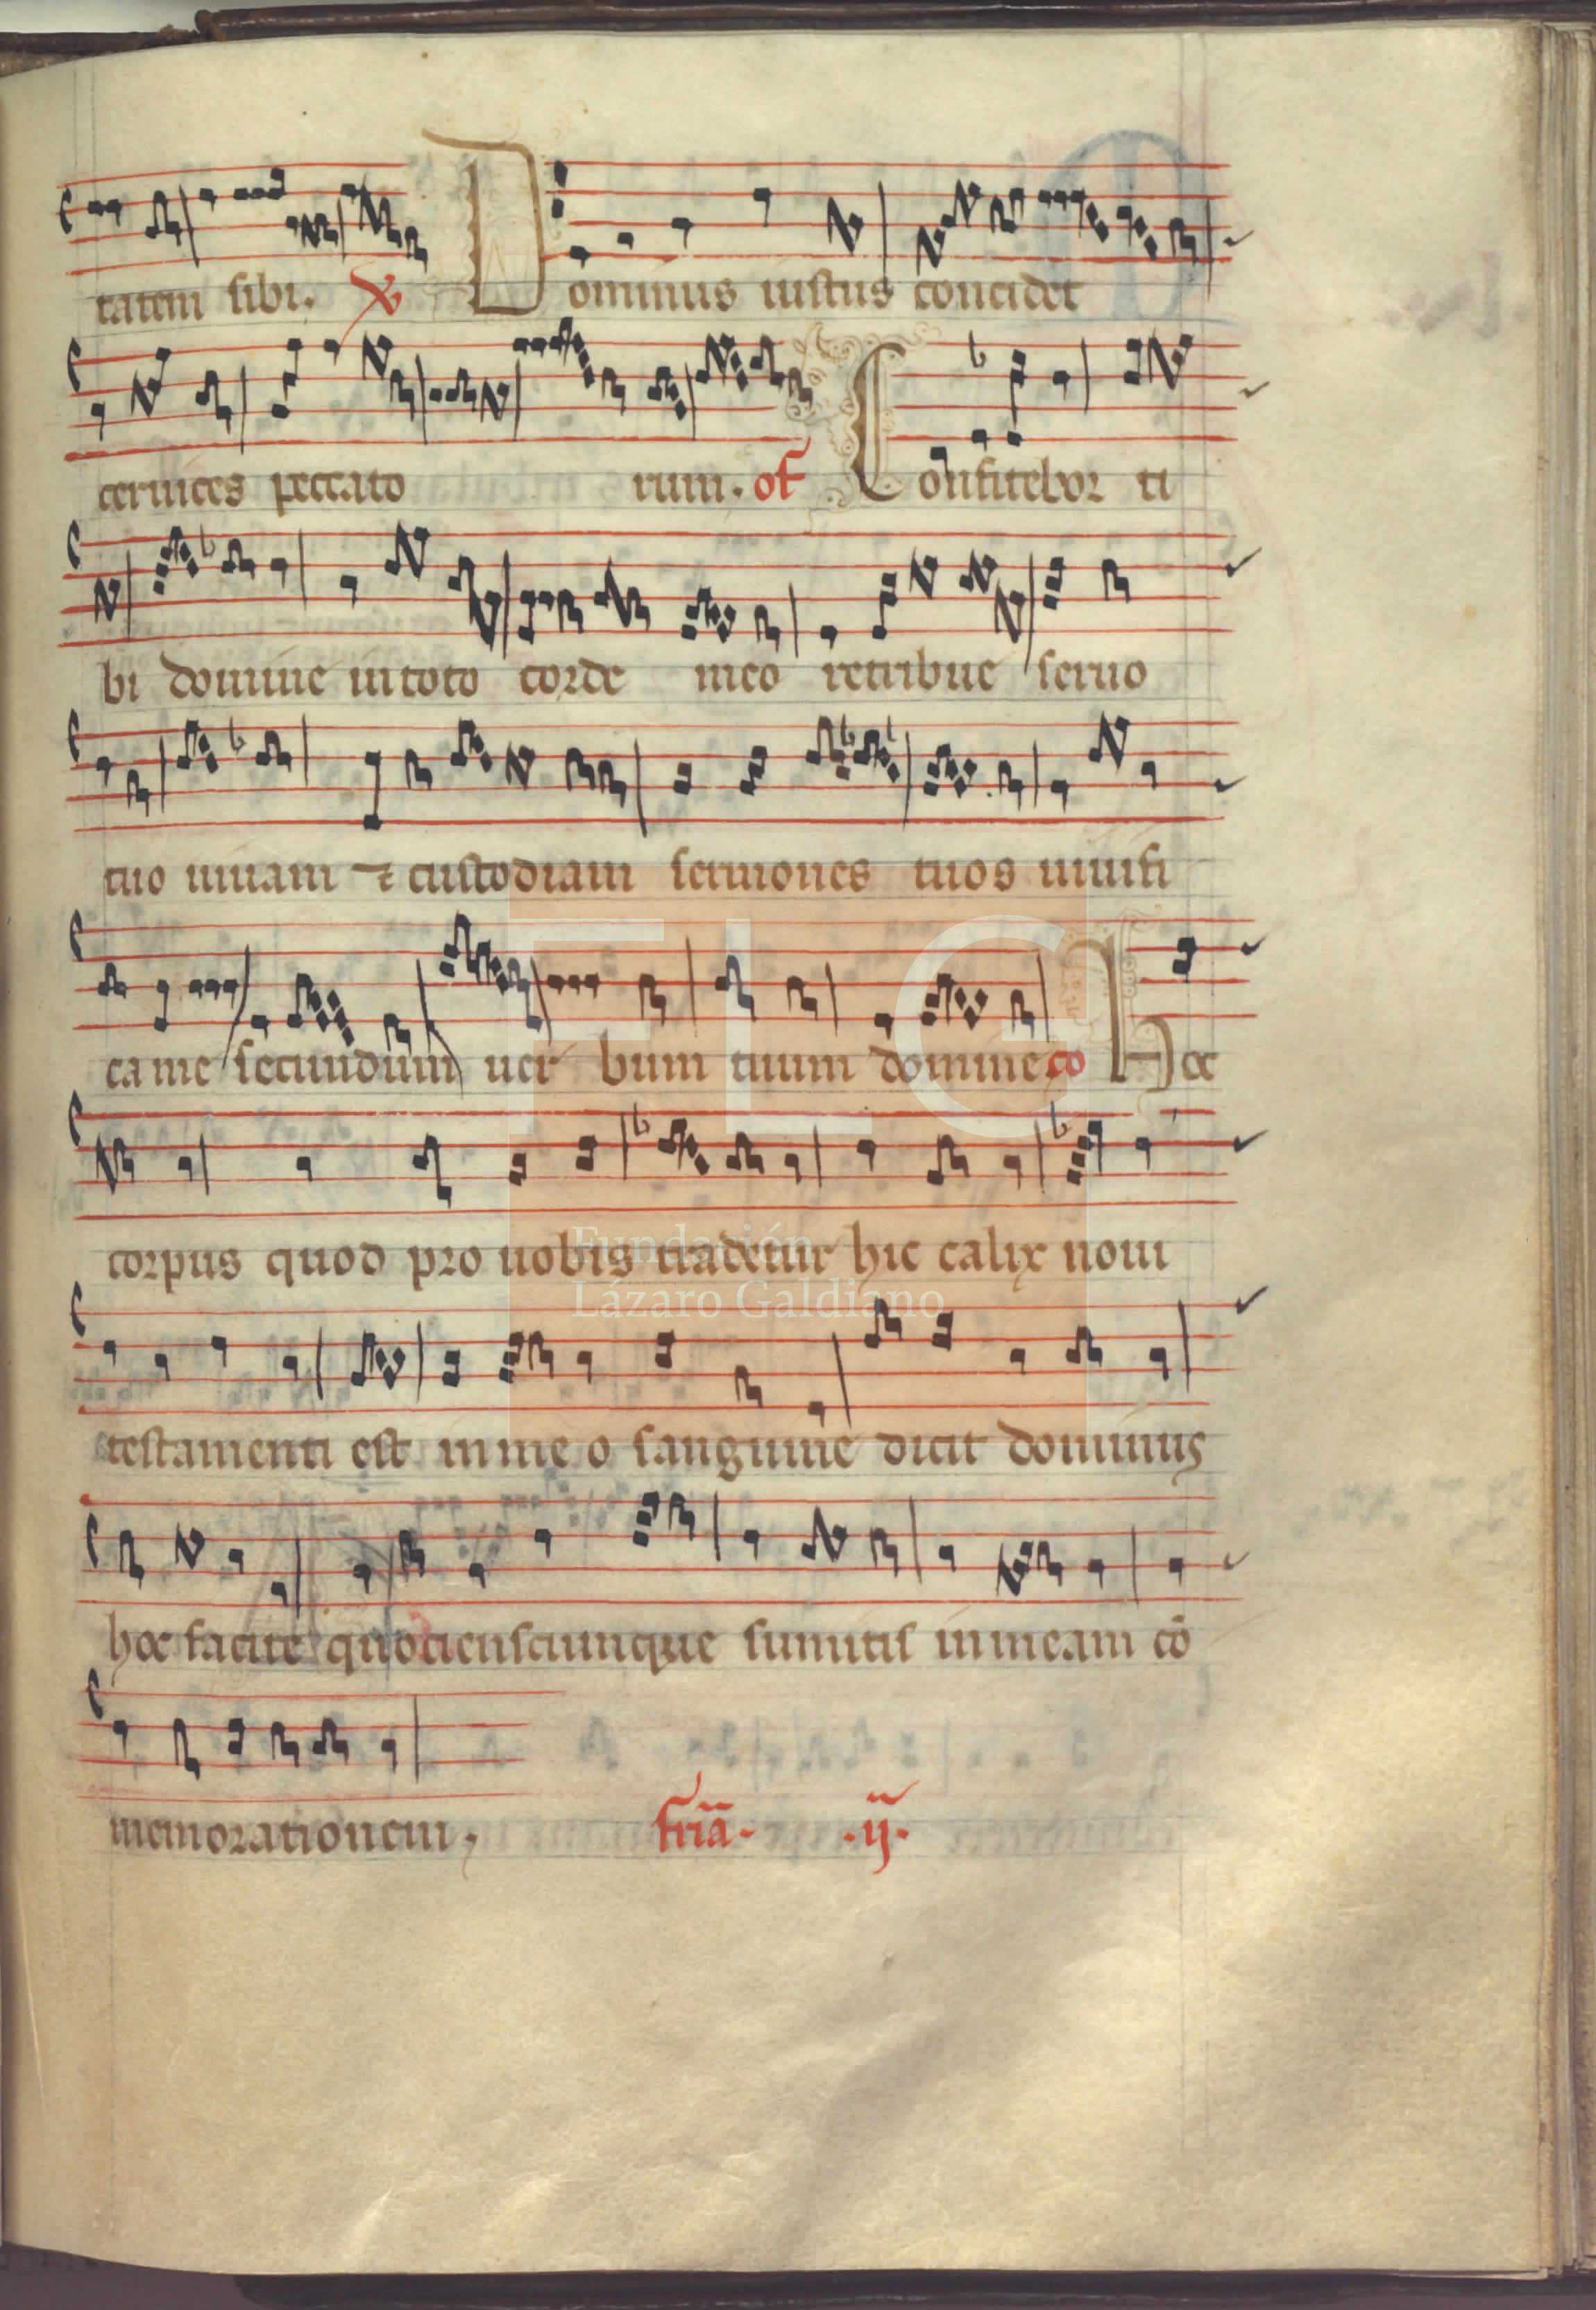 tatem sibi. ℣ Dominus iustus concidet
ceruices peccato rum. of Confitebor ti
bi domine in toto corde meo retribue seruo
tuo uiuam ⁊ custodiam sermones tuos uiuifi
ca me secundum uer bum tuum domine co Hoc
corpus quod pro uobis tradetur hic calix noui
testamenti est in me o sanguine dicit dominus
hoc facite quotienscumque sumitis in meam cō
memorationem. friā. .ij.
FLG
Fundación
Lázaro Galdiano